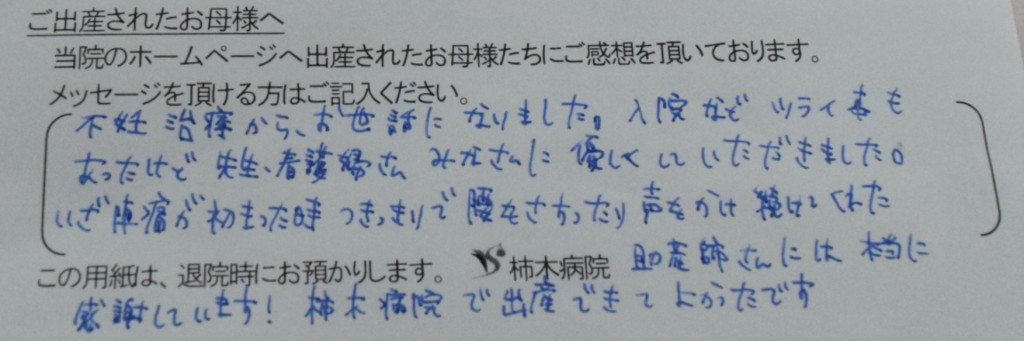 ご出産されたお母様へ
当院のホームページへ出産されたお母様たちにご感想を頂いております。
メッセージを頂ける方はご記入ください。
不妊治療から、お世話になりました。入院など ツライ事も
あったけど 先生、看護婦さん みなさんに 優しくしていただきました。
いざ陣痛が初まった時 つきっきりで腰をさすったり 声をかけ続けてくれた
この用紙は、退院時にお預かりします。 柿木病院 助産師さんには 本当に
感謝しています! 柿木病院で出産できてよかったです